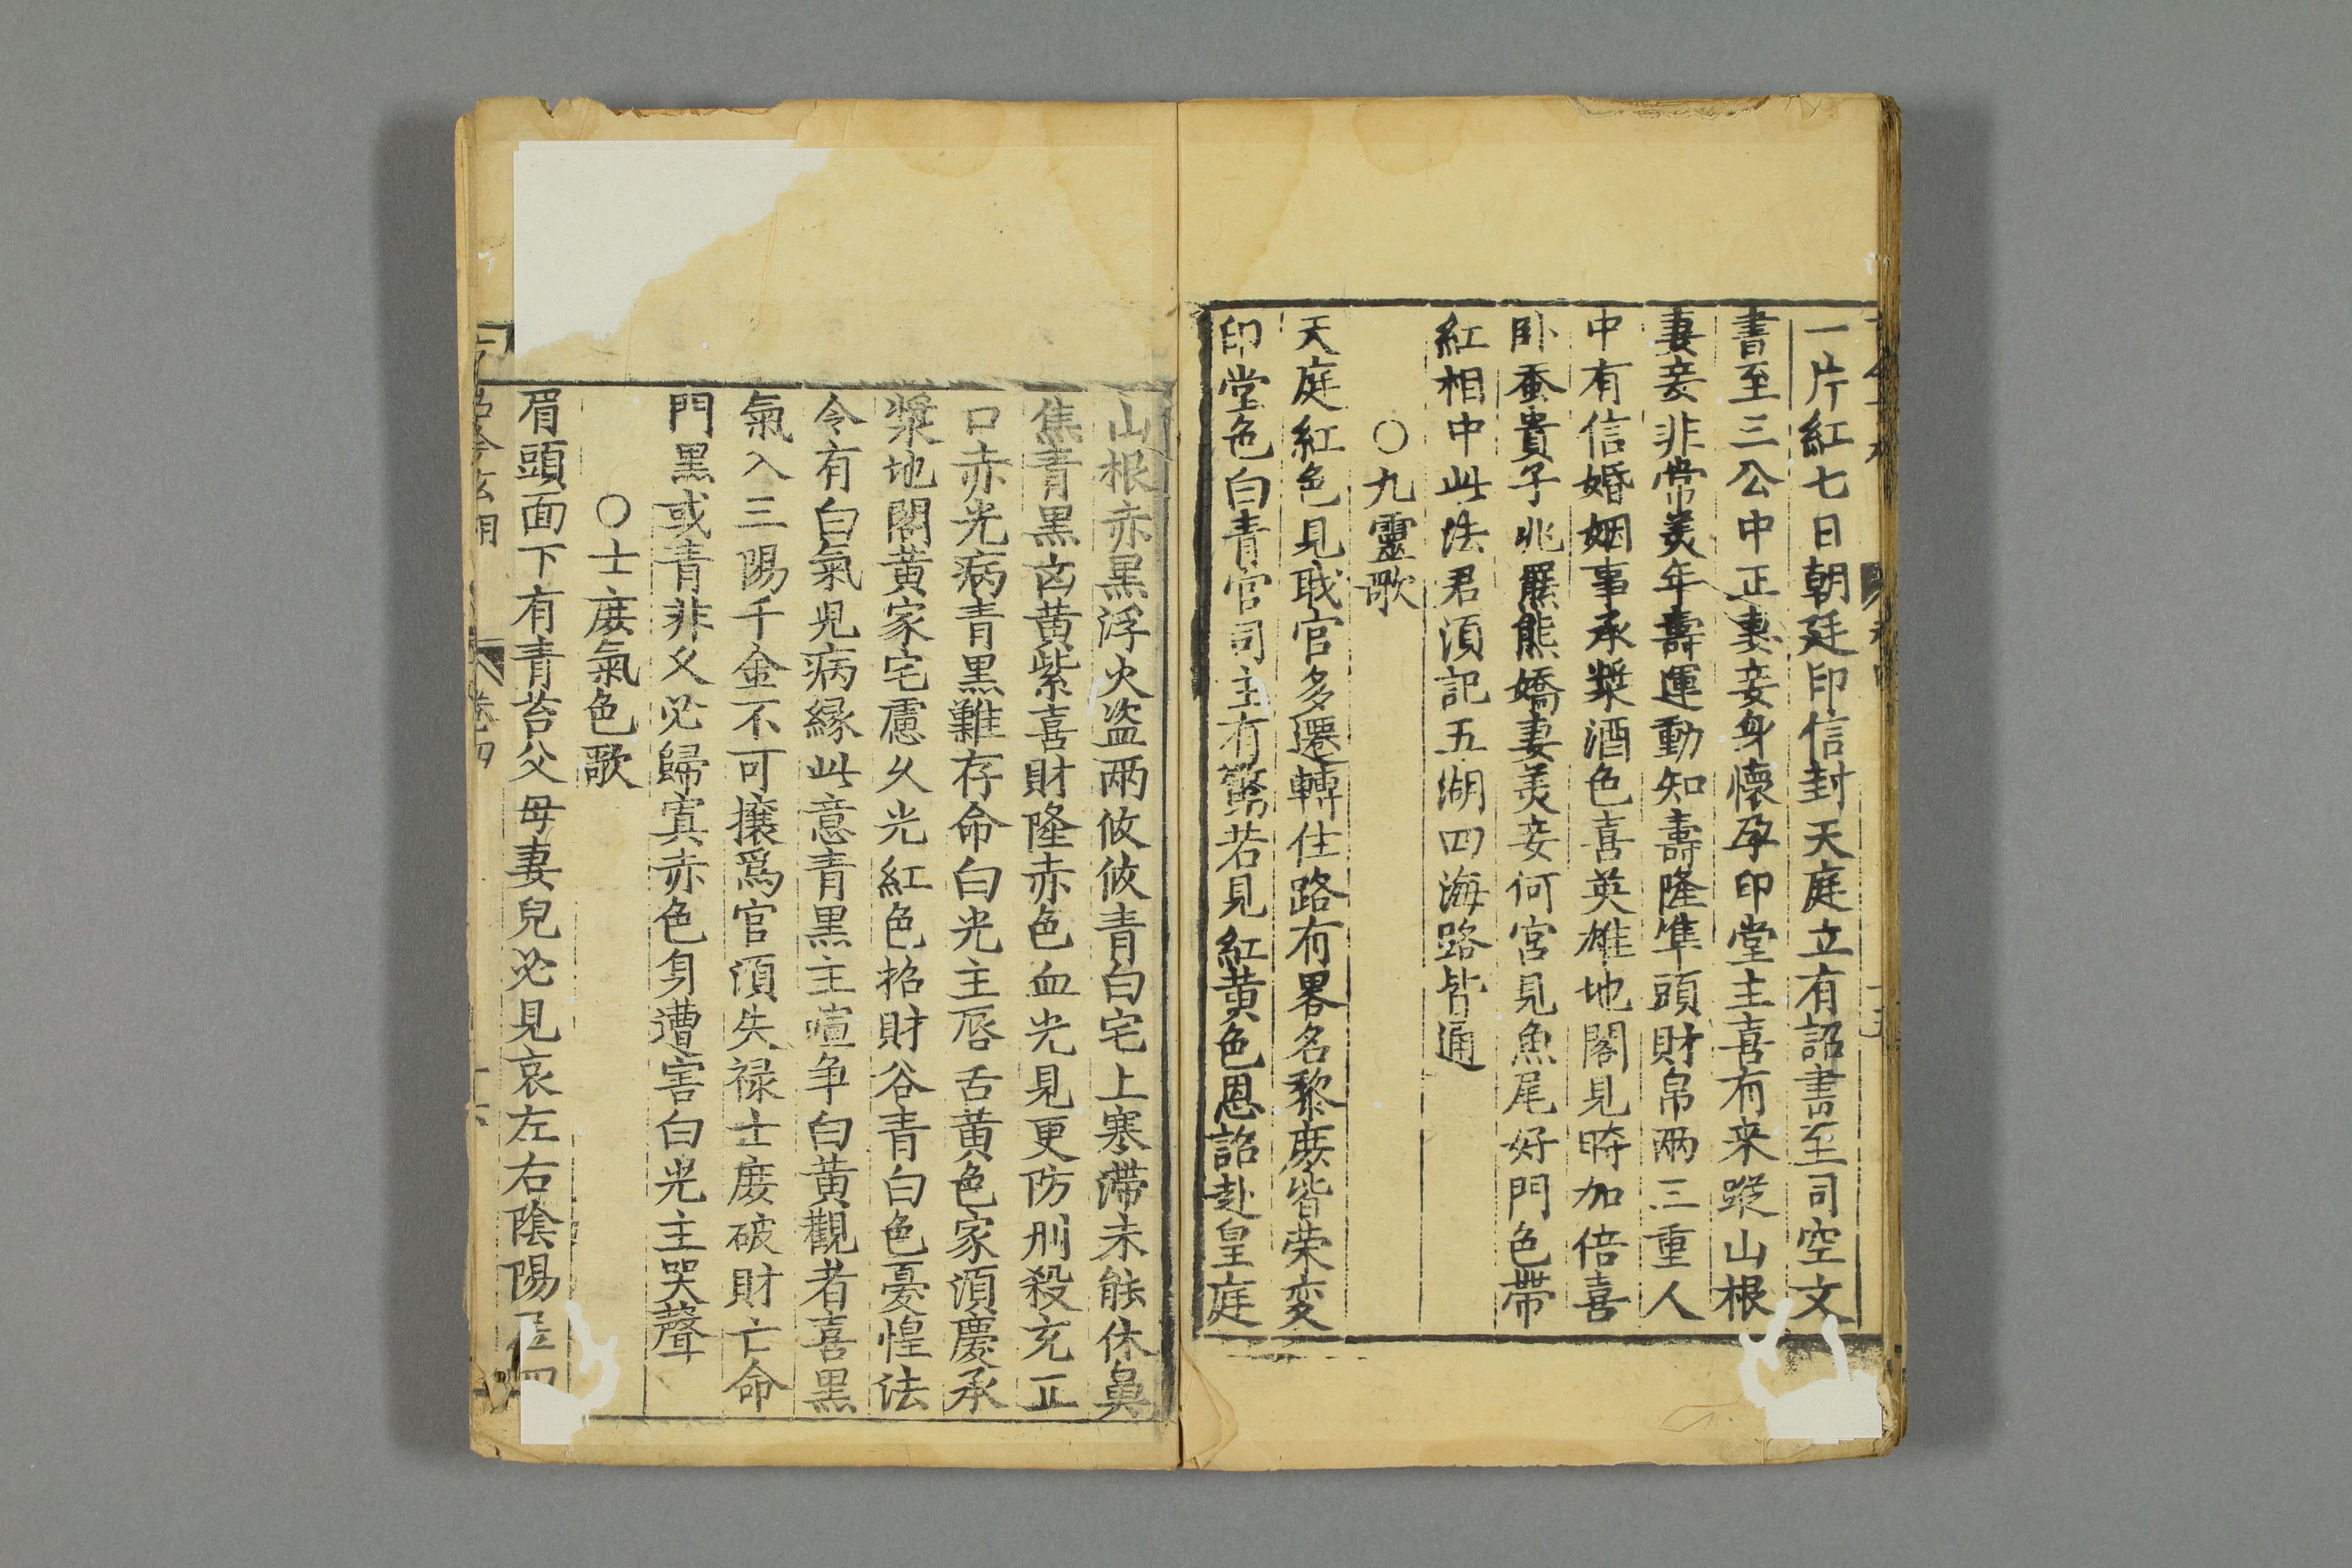 一片紅七日朝廷印信封天庭立有詔書至司空文
書至三公中正妻妾身懷孕印堂主喜有来蹤山根
妻妾非常美年壽運動知壽隆準頭財帛两三重人
中有信婚姻事承漿酒色喜英雄地閣見時加倍喜
卧蚕貴子兆羆熊嬌妻美妾何宮見魚尾好門色帶
紅相中此法君須記五湖四海路皆通
○九靈歌
天庭紅色見職官多遷轉住路有畧名黎庶皆荣变
印堂色白青官司主有驚若見紅黄色恩詔赴皇庭
山根赤黒浮火盗兩攸攸青白宅上寒滯未能休鼻
焦青黒凶黄紫喜財隆赤色血光見更防刑殺充正
口赤光病青黒難存命白光主唇舌黄色家須慶承
漿地閣黄家宅慮久光紅色招財谷青白色憂惶法
令有白氣児病縁此意青黒主喧争白黄觀者喜黒
氣入三陽千金不可攘爲官須失禄士庶破財亡命
門黒或青非父必歸冥赤色身遭害白光主哭聲
○士庶氣色歌
眉頭面下有青苔父母妻兒必見哀左右陰陽
卷四
十六